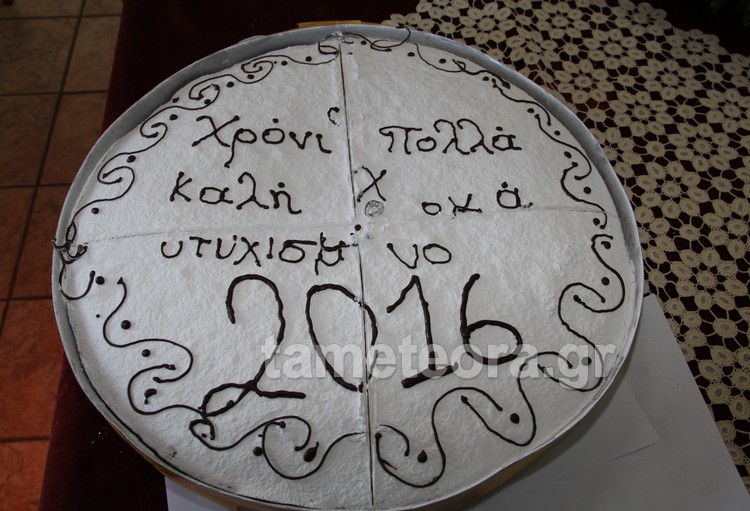 Χρόνι πολλά
καλή χ ομά
υτύχισμ νο
2016
tameteora.gr